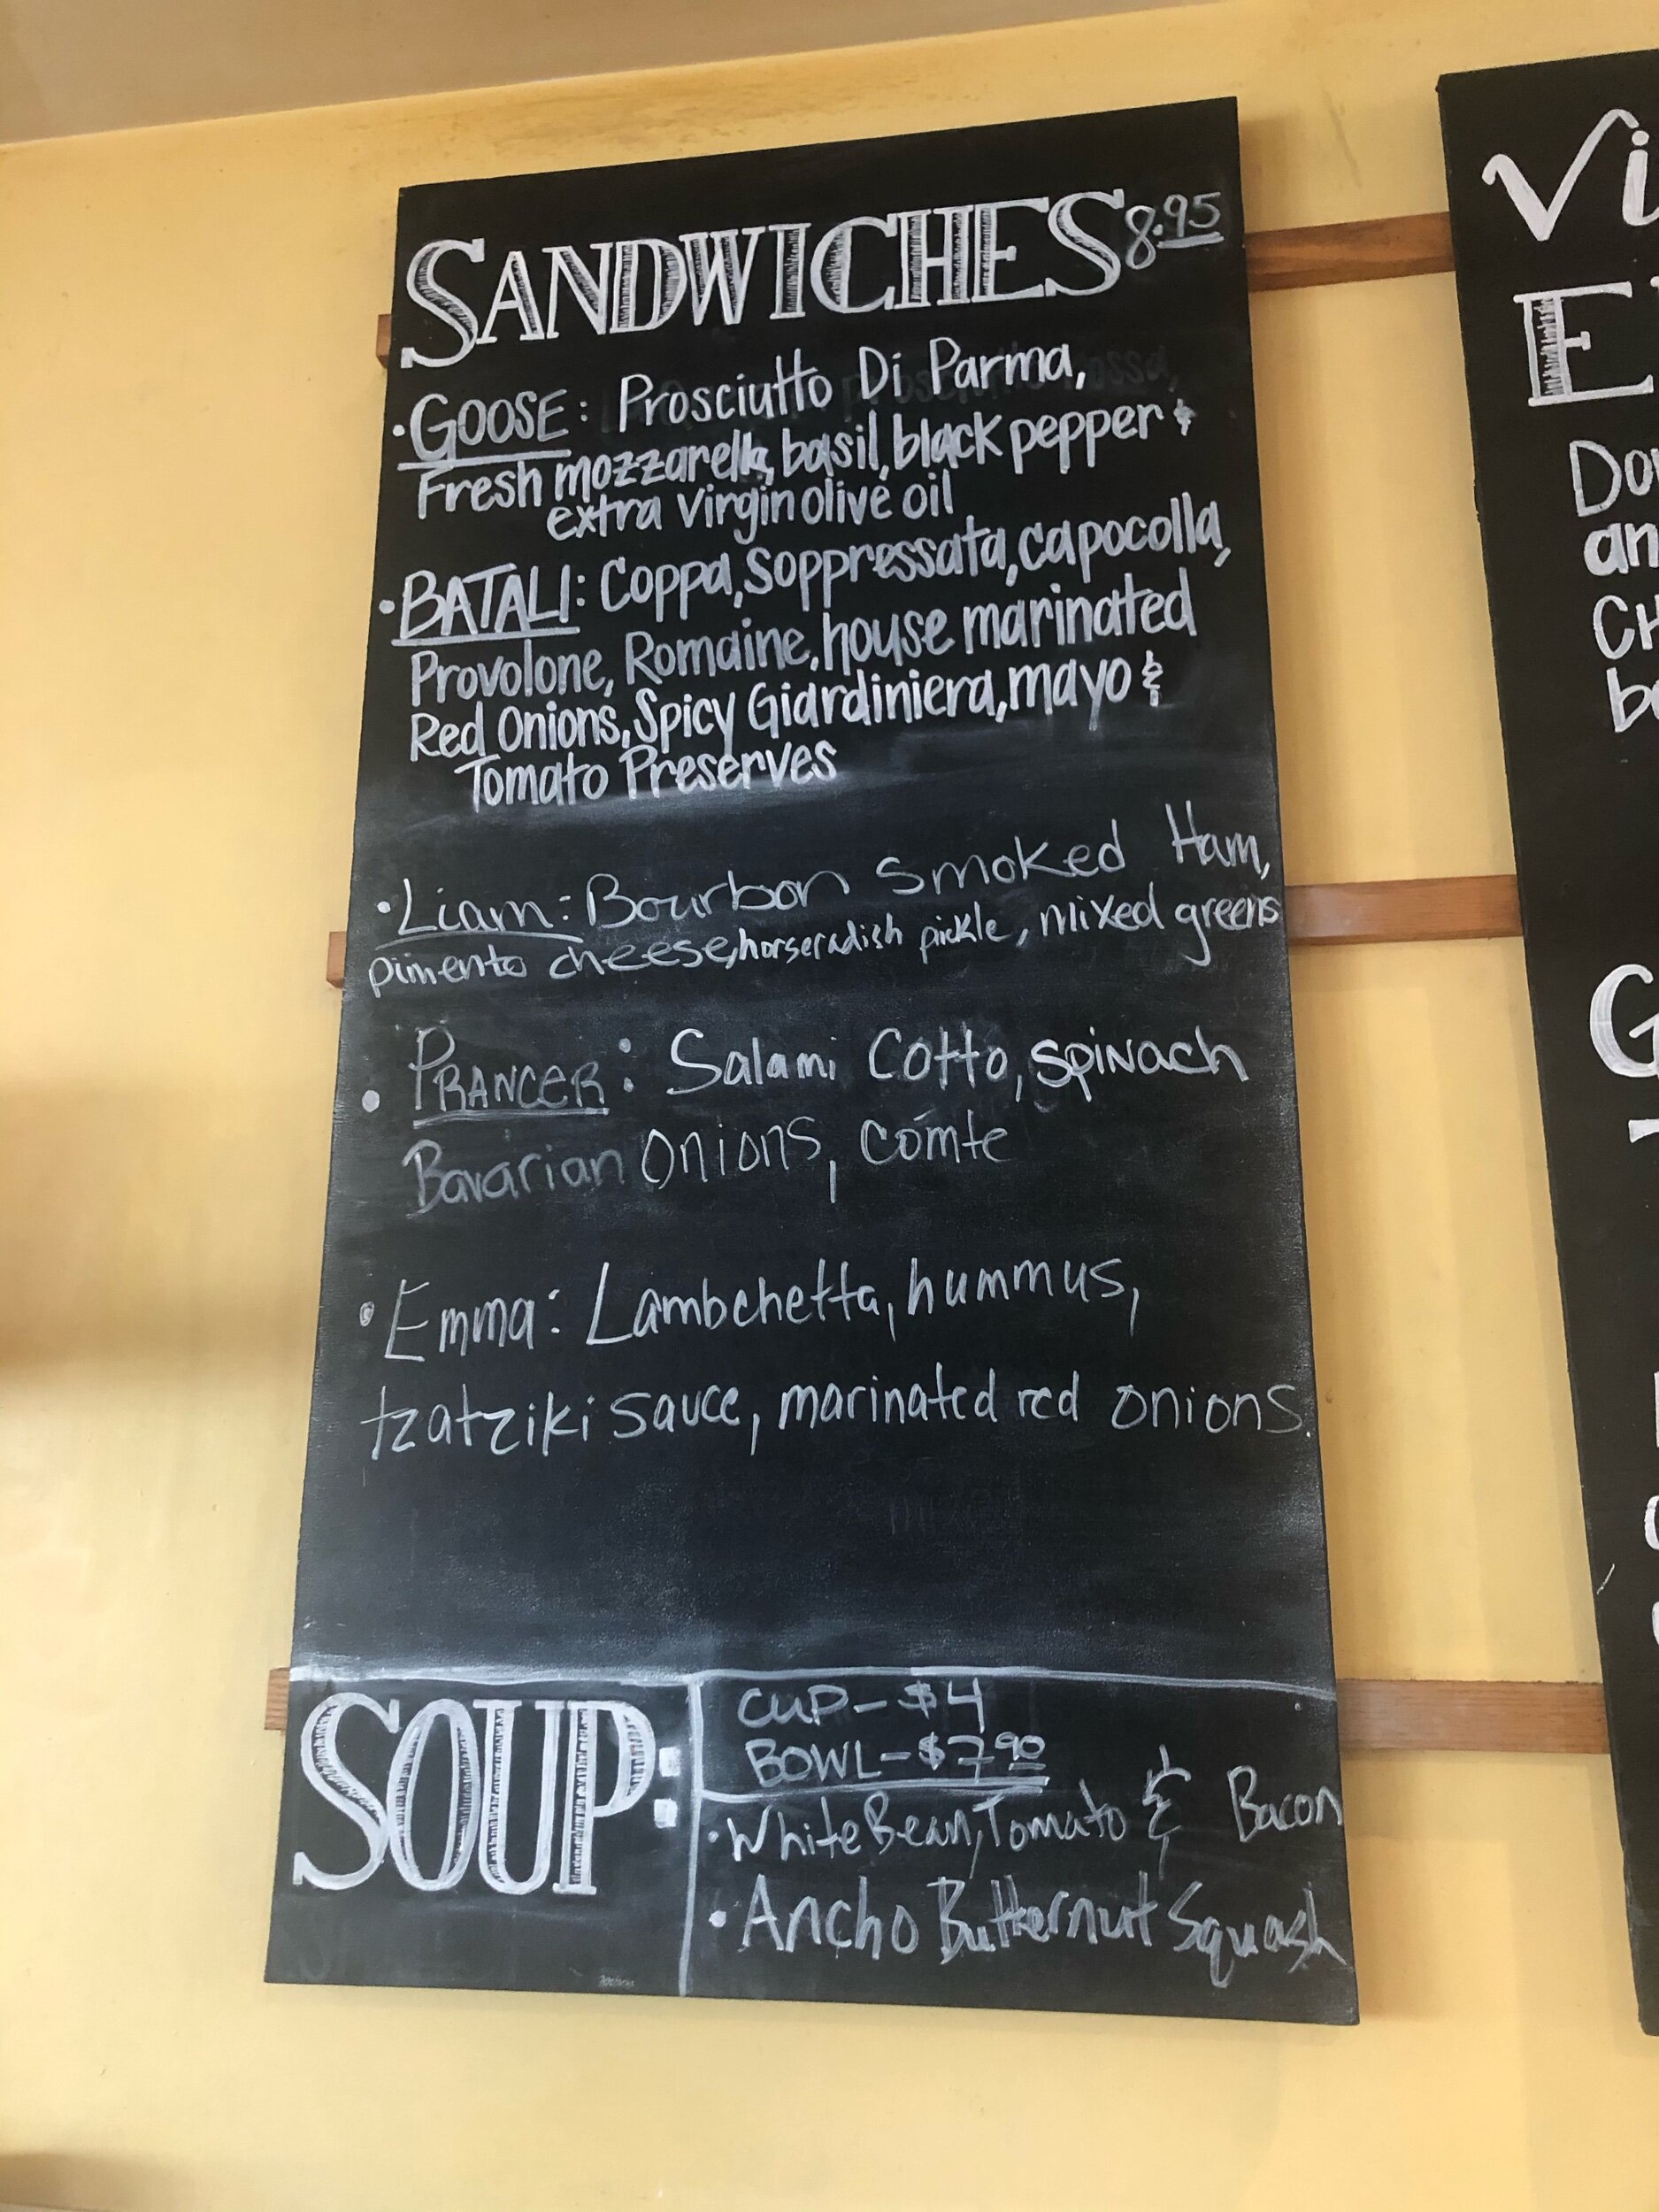 SANDWICHES 8.95
• GOOSE: Prosciutto Di Parma,
Fresh mozzarella, basil, black pepper &
extra virgin olive oil
• BATALI: Coppa, Soppressata, capocolla,
Provolone, Romaine, house marinated
Red Onions, Spicy Giardiniera, mayo &
Tomato Preserves
• Liam: Bourbon smoked Ham,
pimento cheese, horseradish pickle, mixed greens
• PRANCER: Salami Cotto, spinach
Bavarian Onions, comte
• Emma: Lambchetta, hummus,
tzatziki sauce, marinated red onions.
SOUP:
CUP - $4
BOWL - $7.90
• White Bean, Tomato & Bacon
• Ancho Butternut Squash
Vi
E
Do
an
CH
b
G